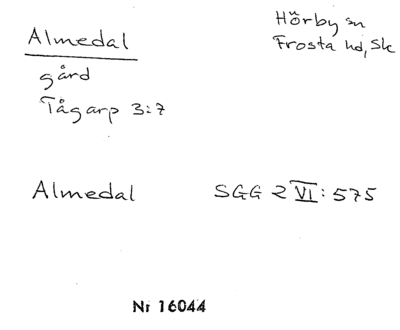 Almedal
gård
Tågarp 3:7
Hörby sn
Frosta hd, Sk
Almedal SGG 2 VI: 575
Nr 16044